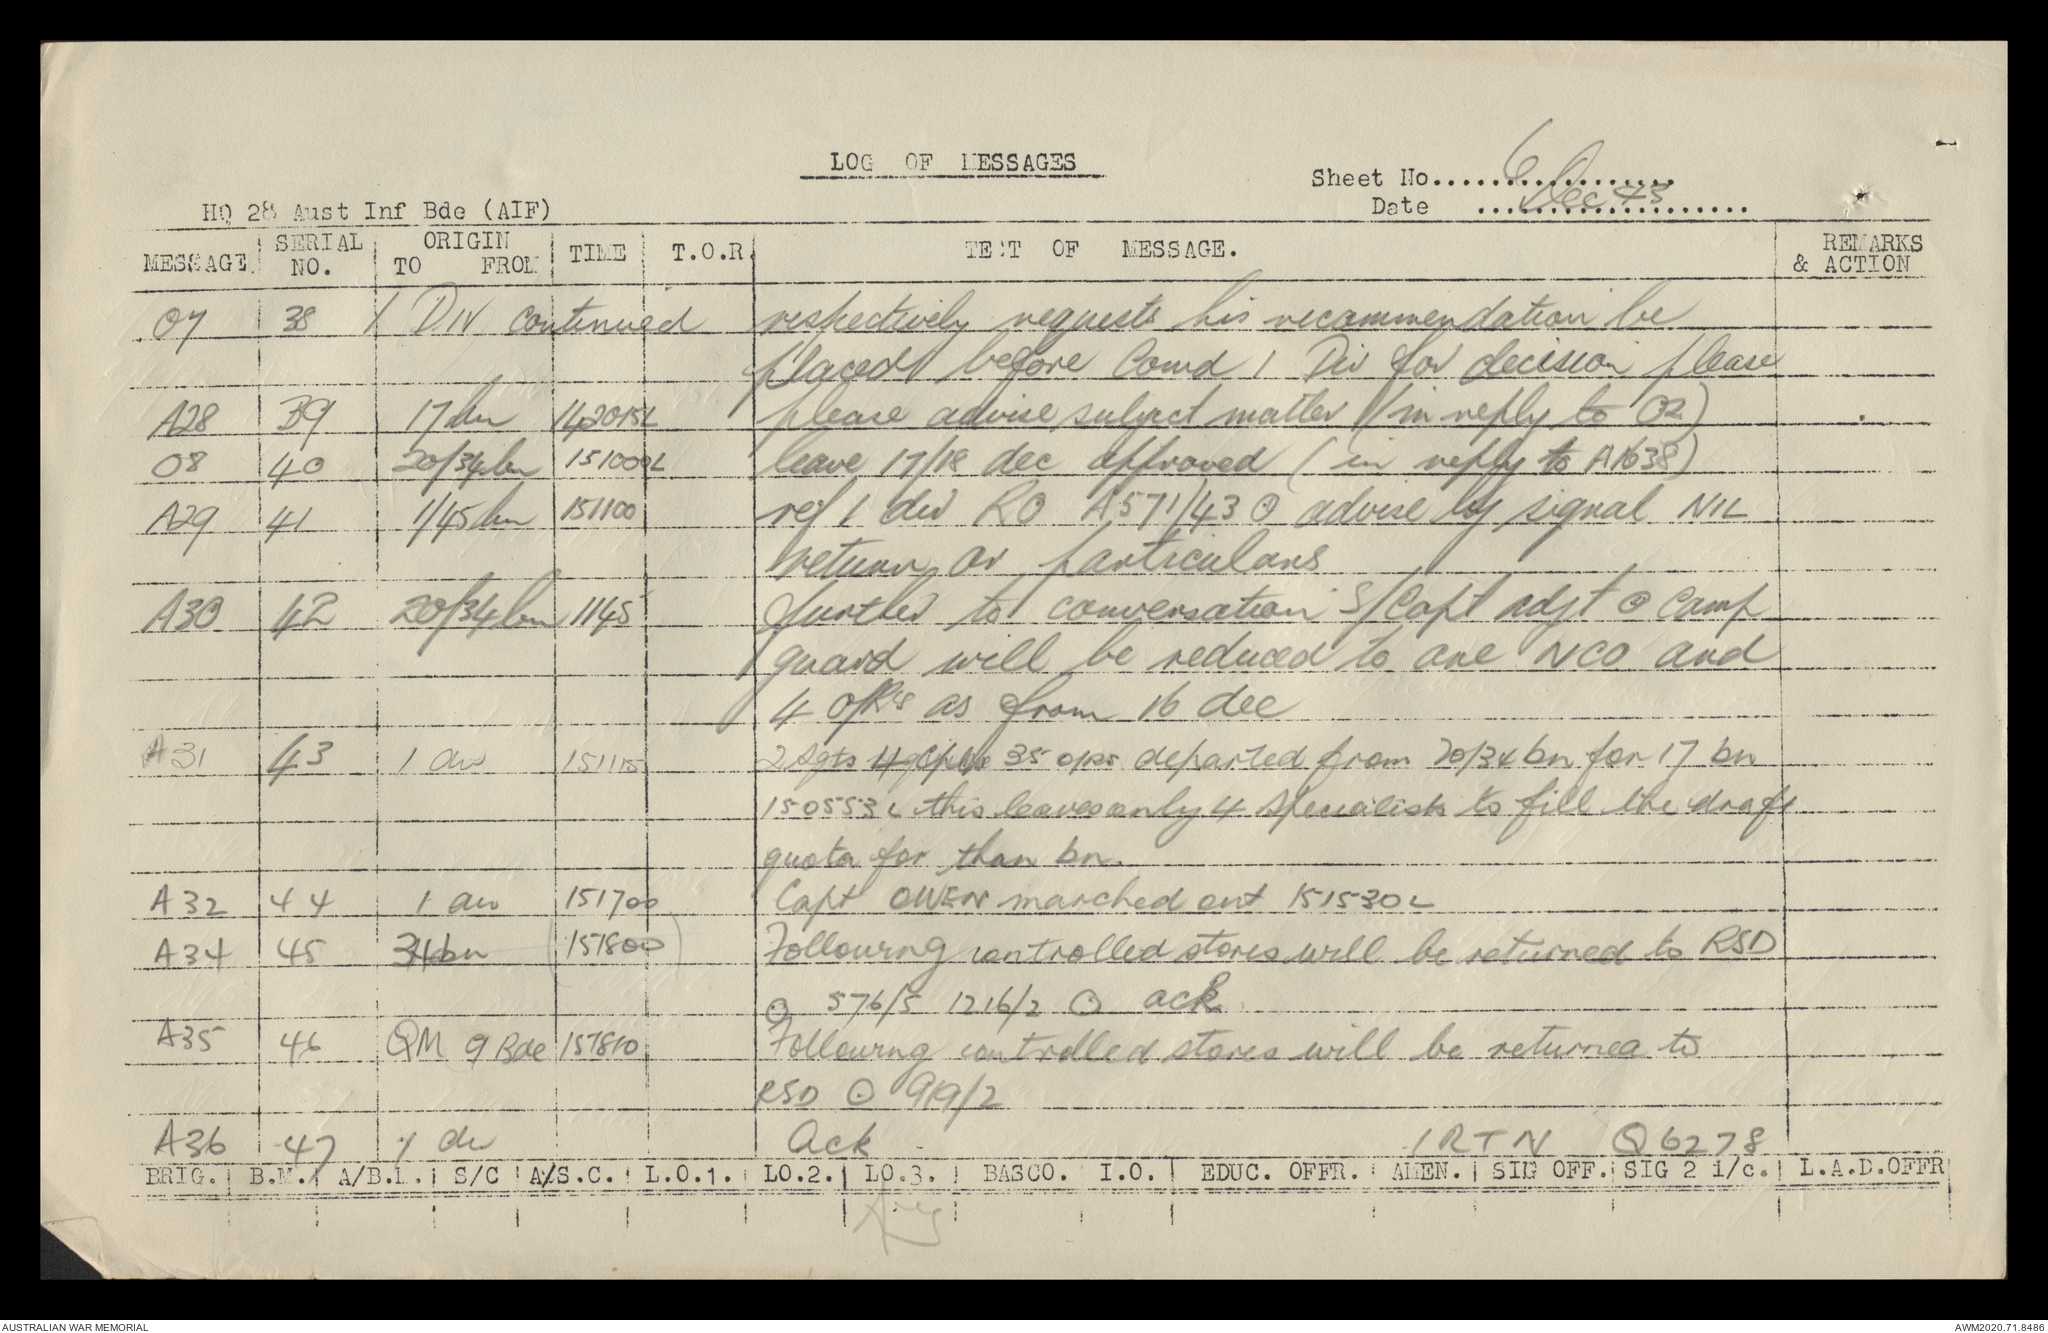 LOG OF MESSAGES
Sheet No.................... 6
Date .................... Dec 43
HQ 28 Aust Inf Bde (AIF)
MESSAGE SERIAL NO. ORIGIN TO FROM TIME T.O.R. TEXT OF MESSAGE. REMARKS & ACTION
O7 38 1 DIV continued respectively requests his recommendation be
placed before Comd 1 Div for decision please
A28 39 17 bn 142015L please advise subject matter (in reply to O2)
O8 40 20/34 bn 151000L leave 17/18 dec approved (in reply to A1638)
A29 41 1/45 bn 151100 ref 1 div RO A571/43 ⊙ advise by signal NIL
return or particulars
A30 42 20/34 bn 1145 further to conversation S/Capt adjt ⊙ Camp
guard will be reduced to one NCO and
4 O/Rs as from 16 dec
A31 43 1 div 151115 2 Sgts 4 Cpls 35 o/rs departed from 20/34 bn for 17 bn
150553L this leaves only 4 specialists to fill the draft
quota for than bn.
A32 44 1 div 151700 Capt OWEN marched out 151530L
A34 45 34 bn (151800) Following controlled stores will be returned to RSD
⊙ 576/5 1216/2 ⊙ ack
A35 46 QM 9 Bde 151810 Following controlled stores will be returned to
RSD ⊙ 919/2
A36 47 1 div Ack 1RTN Q6278
BRIG. B.M. A/B.M. S/C A/S.C. L.O.1. LO.2. LO.3. BASCO. I.O. EDUC. OFFR. AMEN. SIG OFF. SIG 2 i/c. L.A.D.OFFR
AUSTRALIAN WAR MEMORIAL
AWM2020.71.8486